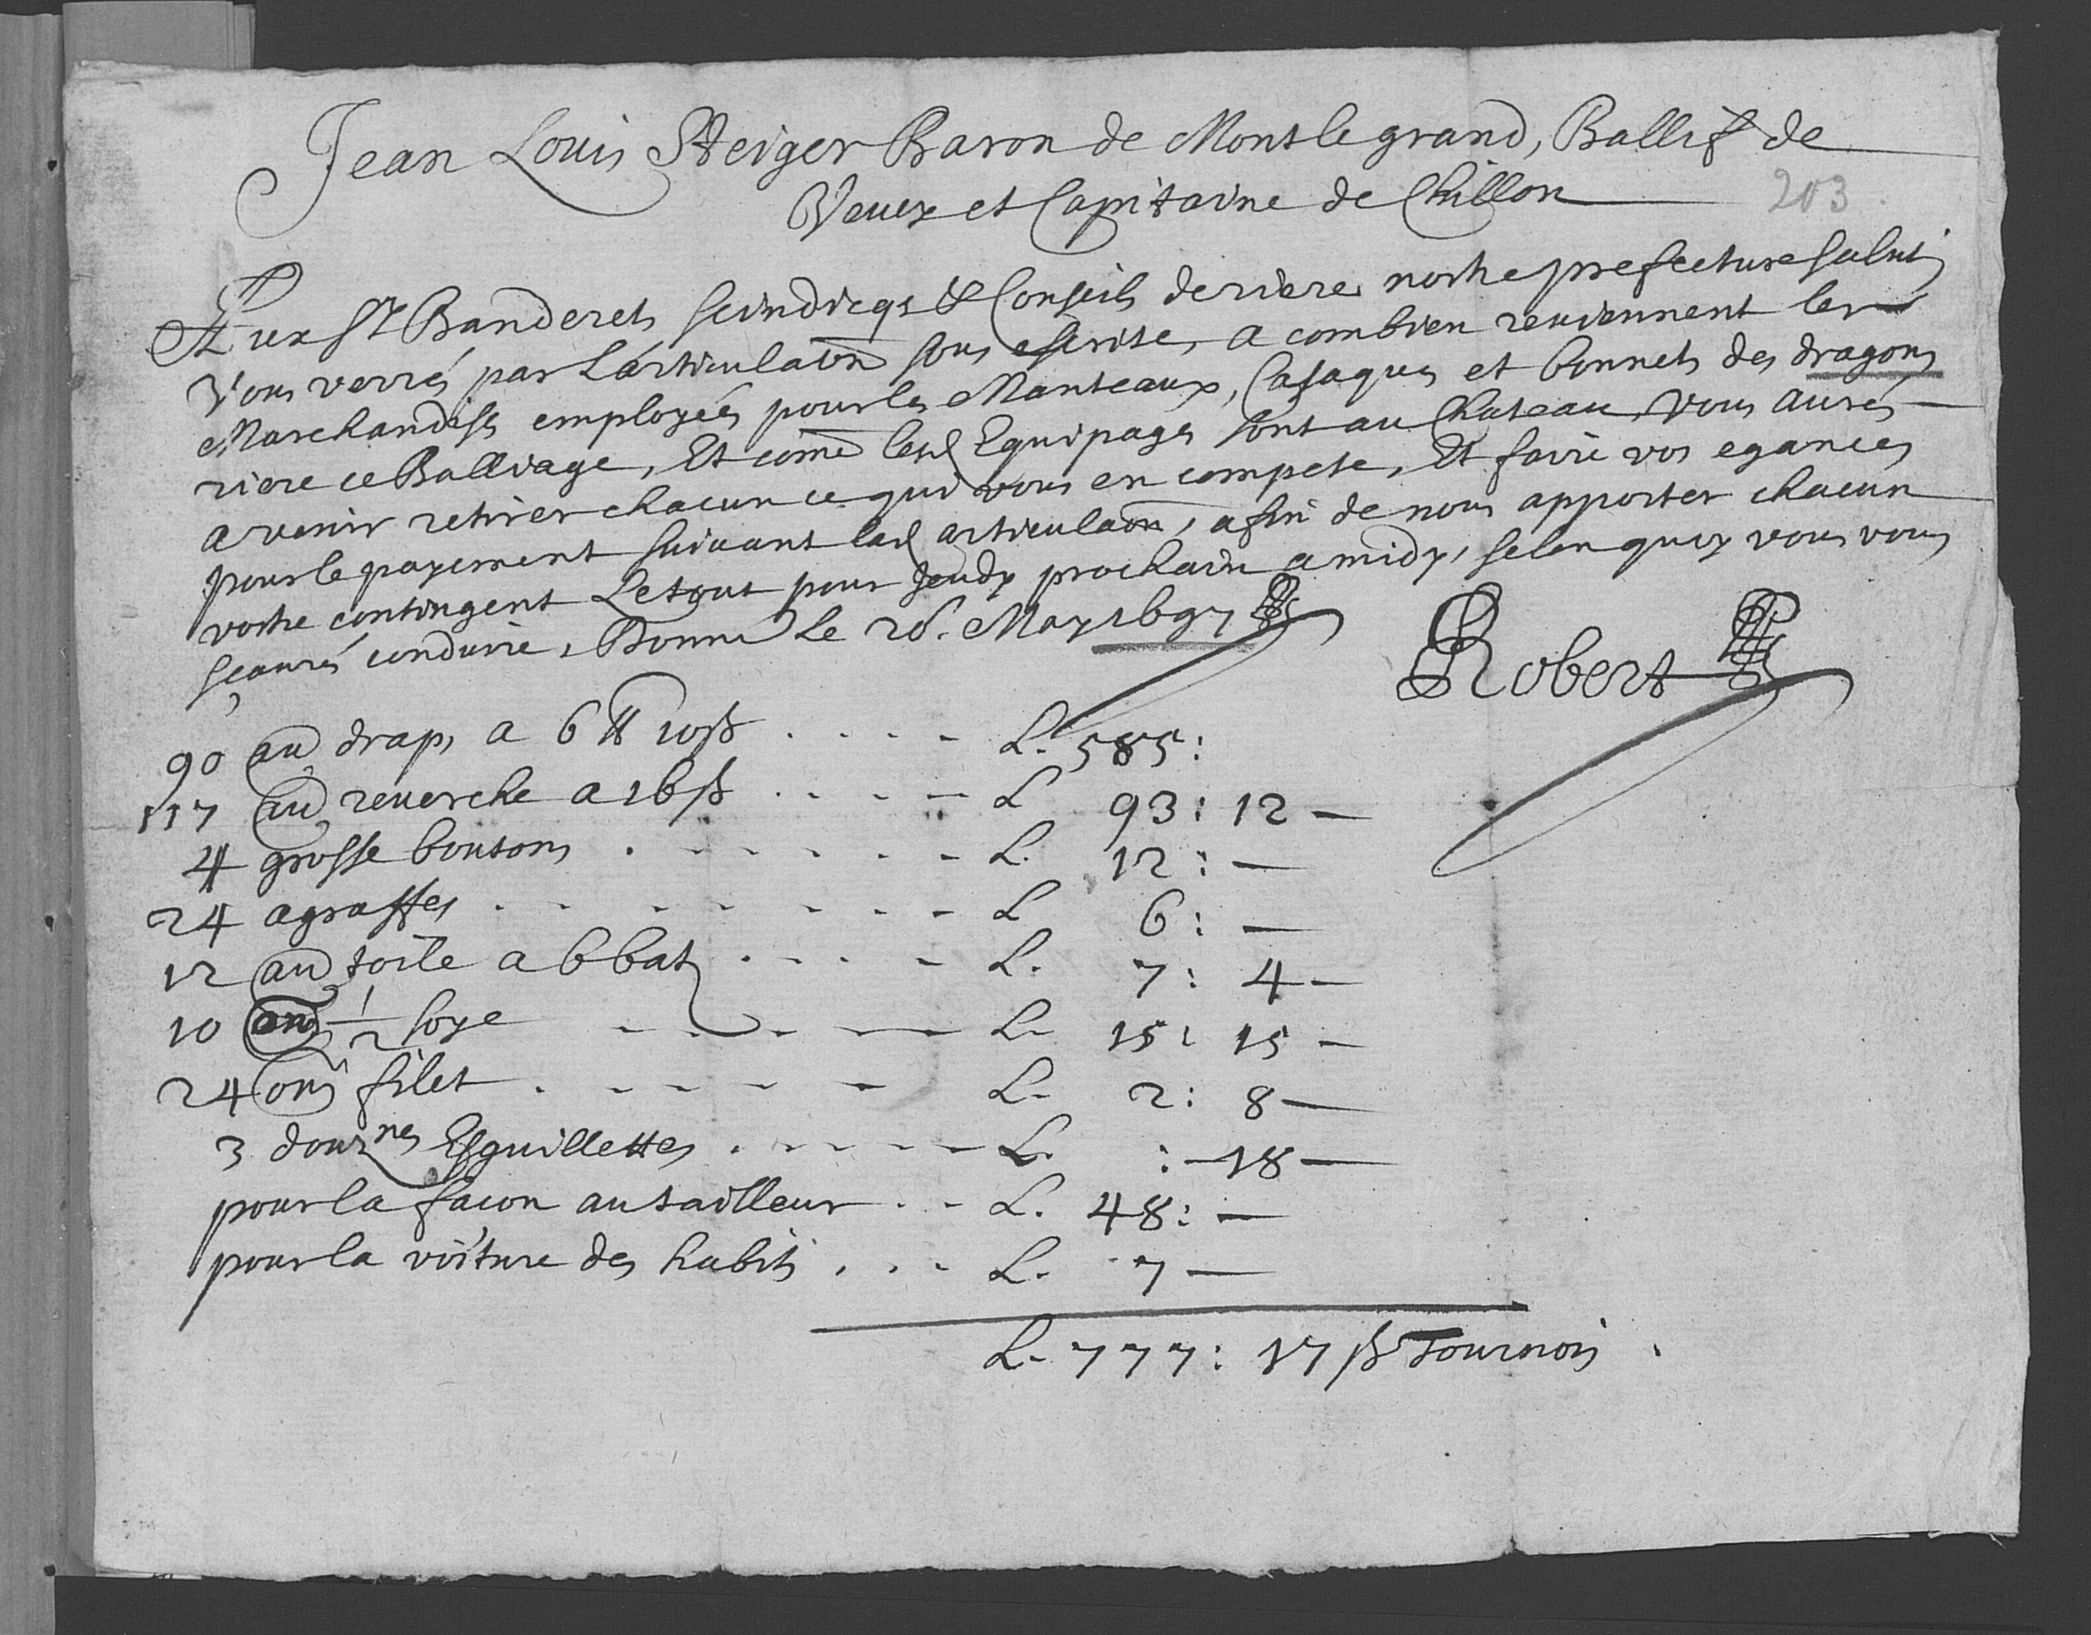 Jean Louis Steiger Baron de Montlegrand, Ballif de
Vevey et Capitaine de Chillon
203
Aux Srs Banderets scindicqs & Conseils deriere nostre prefecture salut,
Vous verrés par Larticulaôn sous escrite, a combien reviennent les
Marchandises employées pour les Manteaux, Casaques et bonnets des dragons
riere ce Balliage, Et comê lesd Equipages sont au Chateau, vous aurés
a venir retirer chacun ce qui vous en compete, Et faire vos egances
pour le payement suivant lad articulaôn, afin de nous apporter chacun
vostre contingent Le tout pour Jeudy prochain a midy, selon quoy vous vous
sçaurés conduire, Donné Le 26. May 1697
Robert
90 au drap, a 6 ℔ 10 ß . . . . L. 585:
117 au reverche a 16 ß . . . . L 93: 12 —
4 grosse boutons . . . . . . L. 12: —
24 agraffes . . . . . . . . L 6: —
12 au toile a 6 bat . . . . L. 7: 4 —
10 on 1/2 soye . . . . L. 15: 15 —
24 on filet . . . . . L. 2: 8 —
3 douznes Esguillettes . . . . . L. : — 18 —
pour la facon au tailleur . . L. 48: —
pour la voiture des habits . . . L. 7 —
L. 777: 17 ß Tournois .